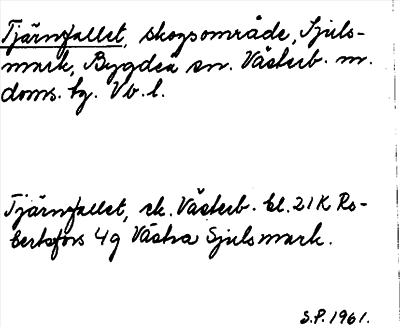 Tjärnfallet, skogsområde, Sjuls-
mark, Bygdeå sn. Västerb. m.
doms. tg. Vb. l.
Tjärnfallet, ek. Västerb. bl. 21K Ro-
bertsfors 4g Västra Sjulsmark.
S.P. 1961.